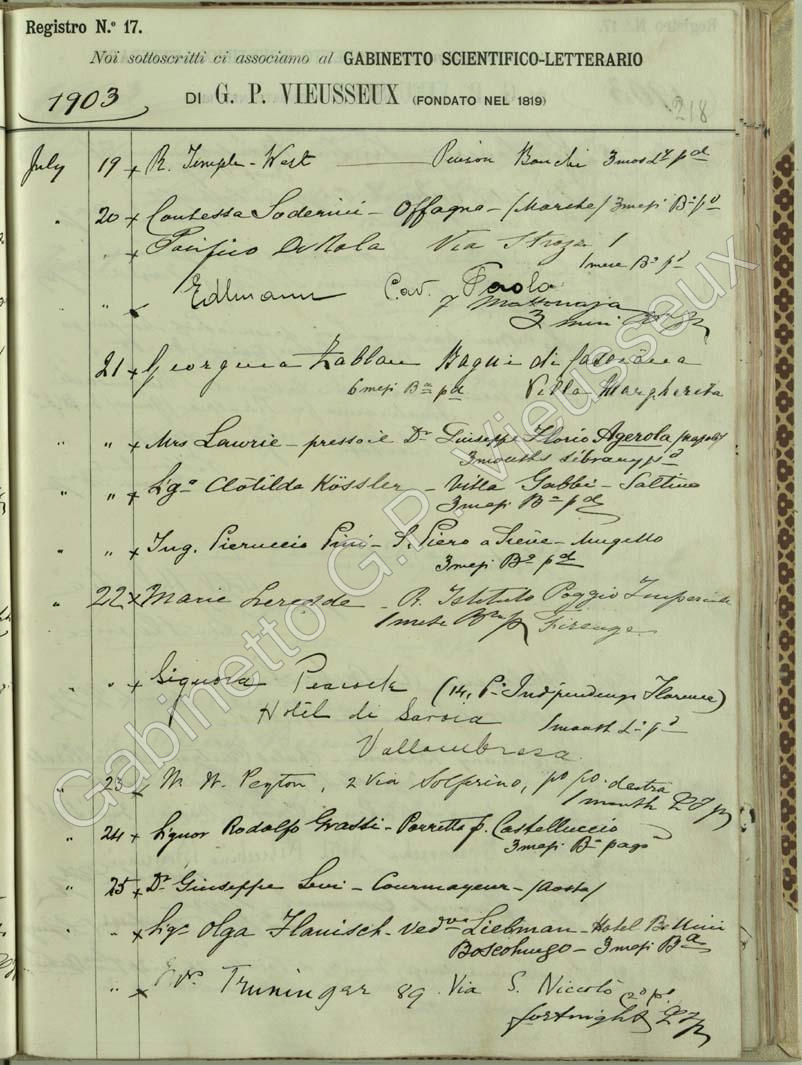 Registro N.º 17.
Noi sottoscritti ci associamo al GABINETTO SCIENTIFICO-LETTERARIO
1903 DI G. P. VIEUSSEUX (FONDATO NEL 1819)
218
July 19 x R. Temple-West — Pension Banchi 3 mos Ly pd
" 20 x Contessa Soderini – Offagna – (Marche) 3 mesi Bª pº
" x Pacifico De Via Strozzi 1
1 mese Bª pº
" Edlmann Cav. Paolo
7 Mattonaja
3 mesi
21 x Georgina Bagni di Casciana
6 mesi Bª pd Villa Margherita
" " x Mrs Lawrie – presso il Dr Giuseppe Florio Agerola (Napoli)
3 months library pd
" " x Sigª Clotilda Kössler – Villa Gabbi – Saltino
3 mesi Bª pd
" " x Ing. Pieruccio Pini – S. Piero a Sieve – Mugello
3 mesi Bª pd
" 22 x Marie – R. Istituto Poggio Imperiale
1 mese Firenze
" " x Signora Peacock (14, Pª Indipendenza Florence)
Hotel di Savoia 1 month Ly pd
Vallombrosa
" 23 W. W. Peyton, 2 Via Solferino, po po. destra
1 month
" 24 x Signor Rodolfo Grassi – Porretta p. Castelluccio
3 mesi Bª pago
" 25 x Dr Giuseppe Levi – Courmayeur – (Aosta)
" x Sigª Olga Hanisch – vedva Liebman – Hotel Bellini
Boscolungo – 3 mesi Bª
" x Truninger 89 Via S. Niccolò 2º pº
fortnight
Gabinetto G.P. Vieusseux